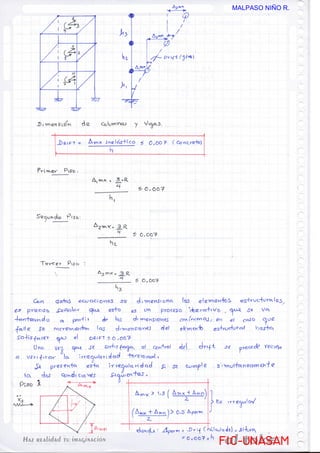 MALPASO NIÑO R.
Δ3mx
h3
Δ2mx
h2
Drift (giro)
Δ1mx
h1
Dimensión de Columnas y Vigas.
DRIFT = Δmx inelástico / h ≤ 0,007 (Concreto)
Primer Piso:
Δ1mx. 3/4 R / h1 ≤ 0,007
Segundo Piso:
Δ2mx. 3/4 R / h2 ≤ 0,007
Tercer Piso:
Δ3mx. 3/4 R / h3 ≤ 0,007
Con estas ecuaciones se dimensiona los elementos estructurales,
es preciso señalar que esto es un proceso iterativo, que se va
tanteando a partir de las dimensiones mínimas, en el caso que
falle se incrementan las dimensiones del elemento estructural hasta
satisfacer que el DRIFT ≤ 0.007
Una vez que se satisfaga el control del drift se procede recién
a verificar la irregularidad torsional.
Se presenta esta irregularidad si se cumple simultaneamente
las dos condiciones siguientes.
PISO
Δmx
Δmn
Δmx > 1.3 (Δmx + Δmn / 2)
(Δmx + Δmn / 2) > 0.5 Δperm
Es irregular
donde: Δperm =
= 0.007 * h
Haz realidad tu imaginación
FIC-UNASAM